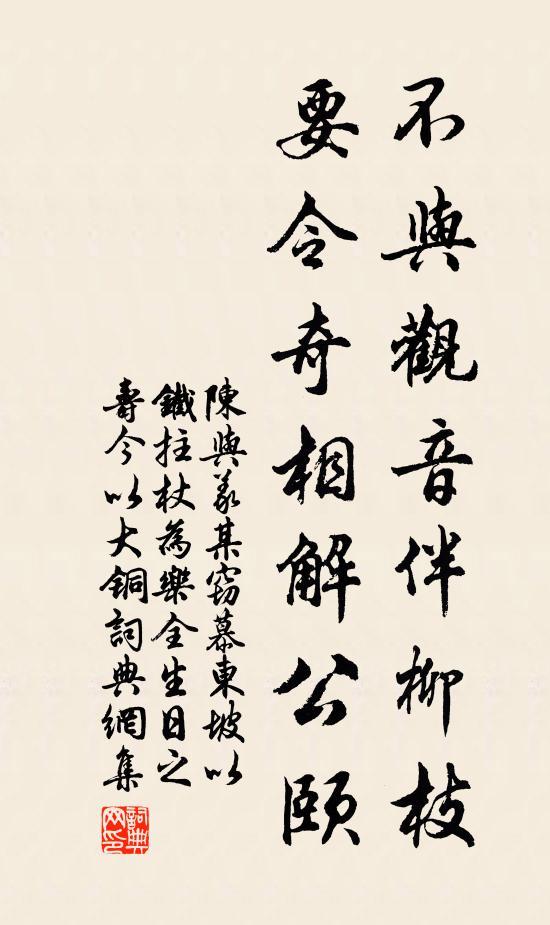 不與觀音伴柳枝
要令奇相解公頤
陳與義某窃慕東坡以
鐵拄杖為樂全生日之
壽今以大銅詞典網集
詞典
网印